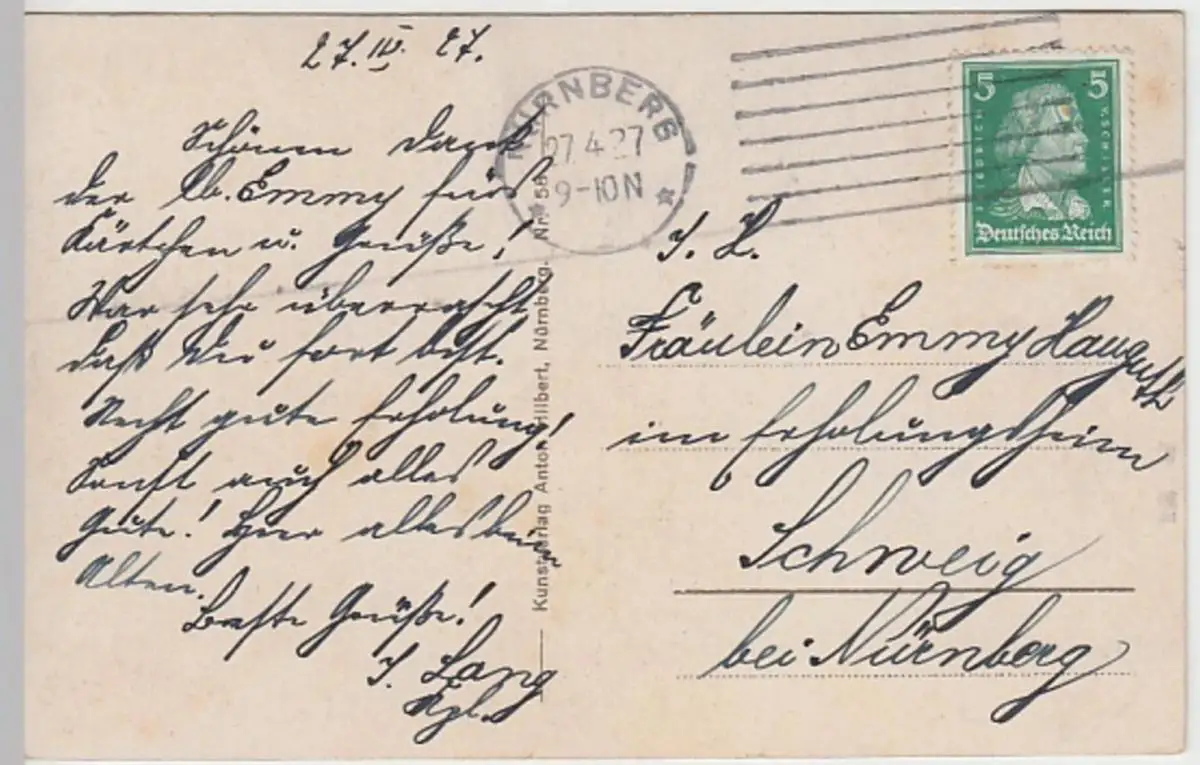 27. IV. 27.
Schönen Dank
der lb. Emmy fürs
Kärtchen u. Grüße!
War sehr überrascht
daß Du fort bist.
Recht gute Erholung!
Sonst auch alles
Gute! Hier alles beim
Alten.
Beste Grüße!
J. Lang
Kpl.
Kunstverlag Anton Hilbert, Nürnberg. Nr. 58
NÜRNBERG
27.4.27
9-10N
5 5
FRIEDRICH V. SCHILLER
Deutsches Reich
Fräulein Emmy
im Erholungsheim
Schweig
bei Nürnberg